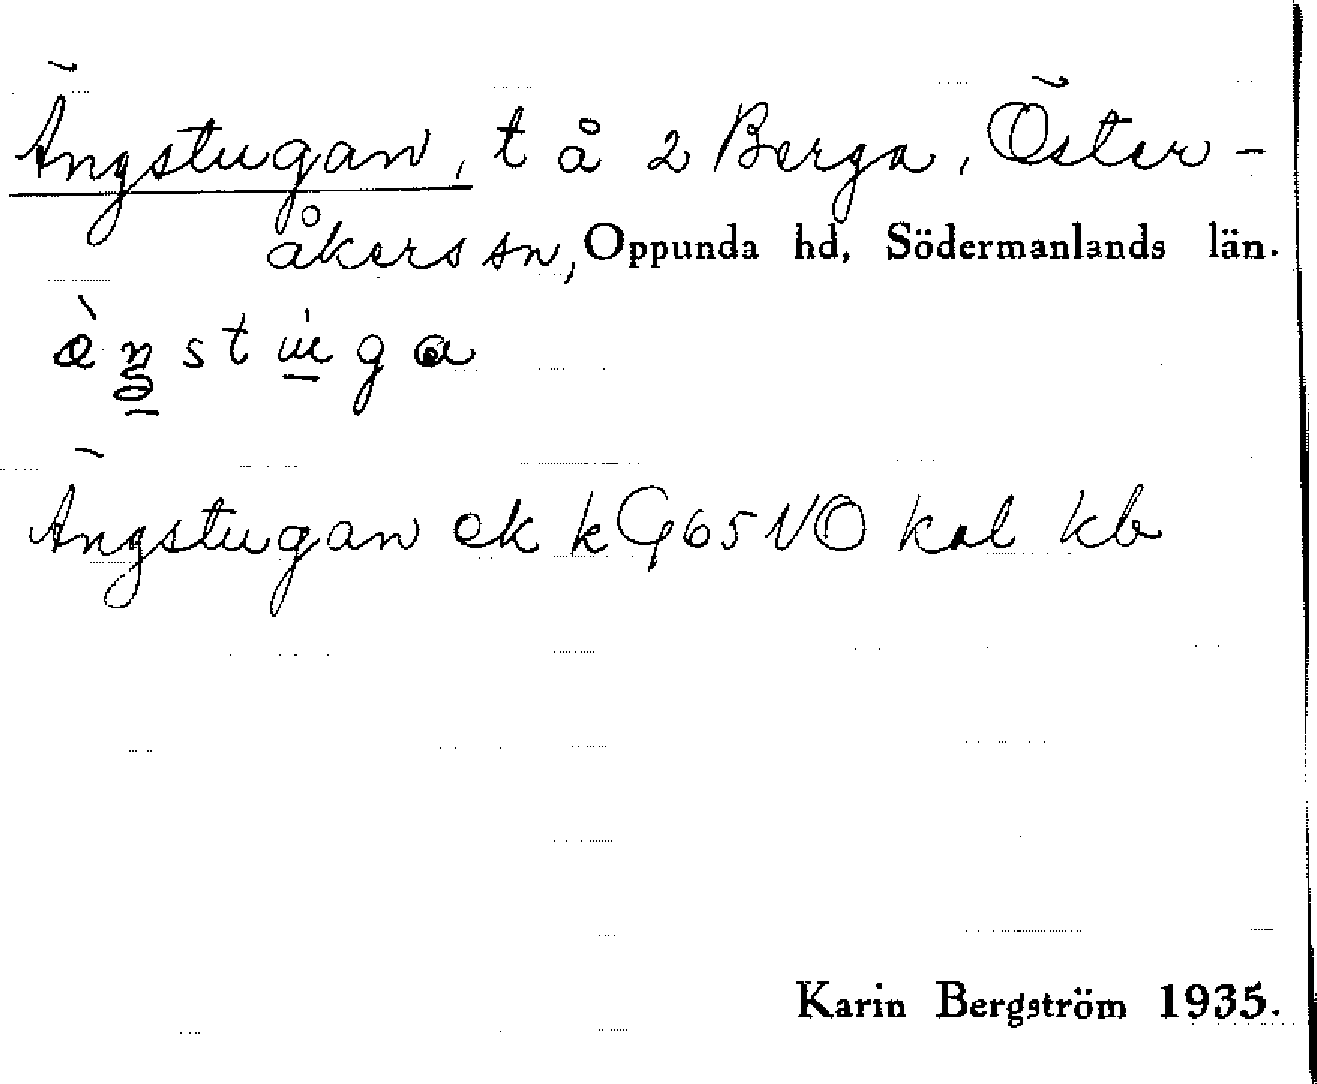 Ängstugan, t å 2 Berga, Öster-
åkers sn, Oppunda hd, Södermanlands län.
Ängstugan ek kG65NO kal kb
Karin Bergström 1935.